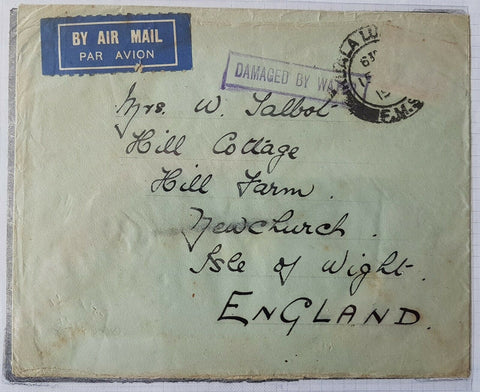 BY AIR MAIL
PAR AVION
DAMAGED BY WA
KUALA LU
F.M.S
Mrs. W. Talbot
Hill Cottage
Hill Farm.
Newchurch.
Isle of Wight.
ENGLAND.